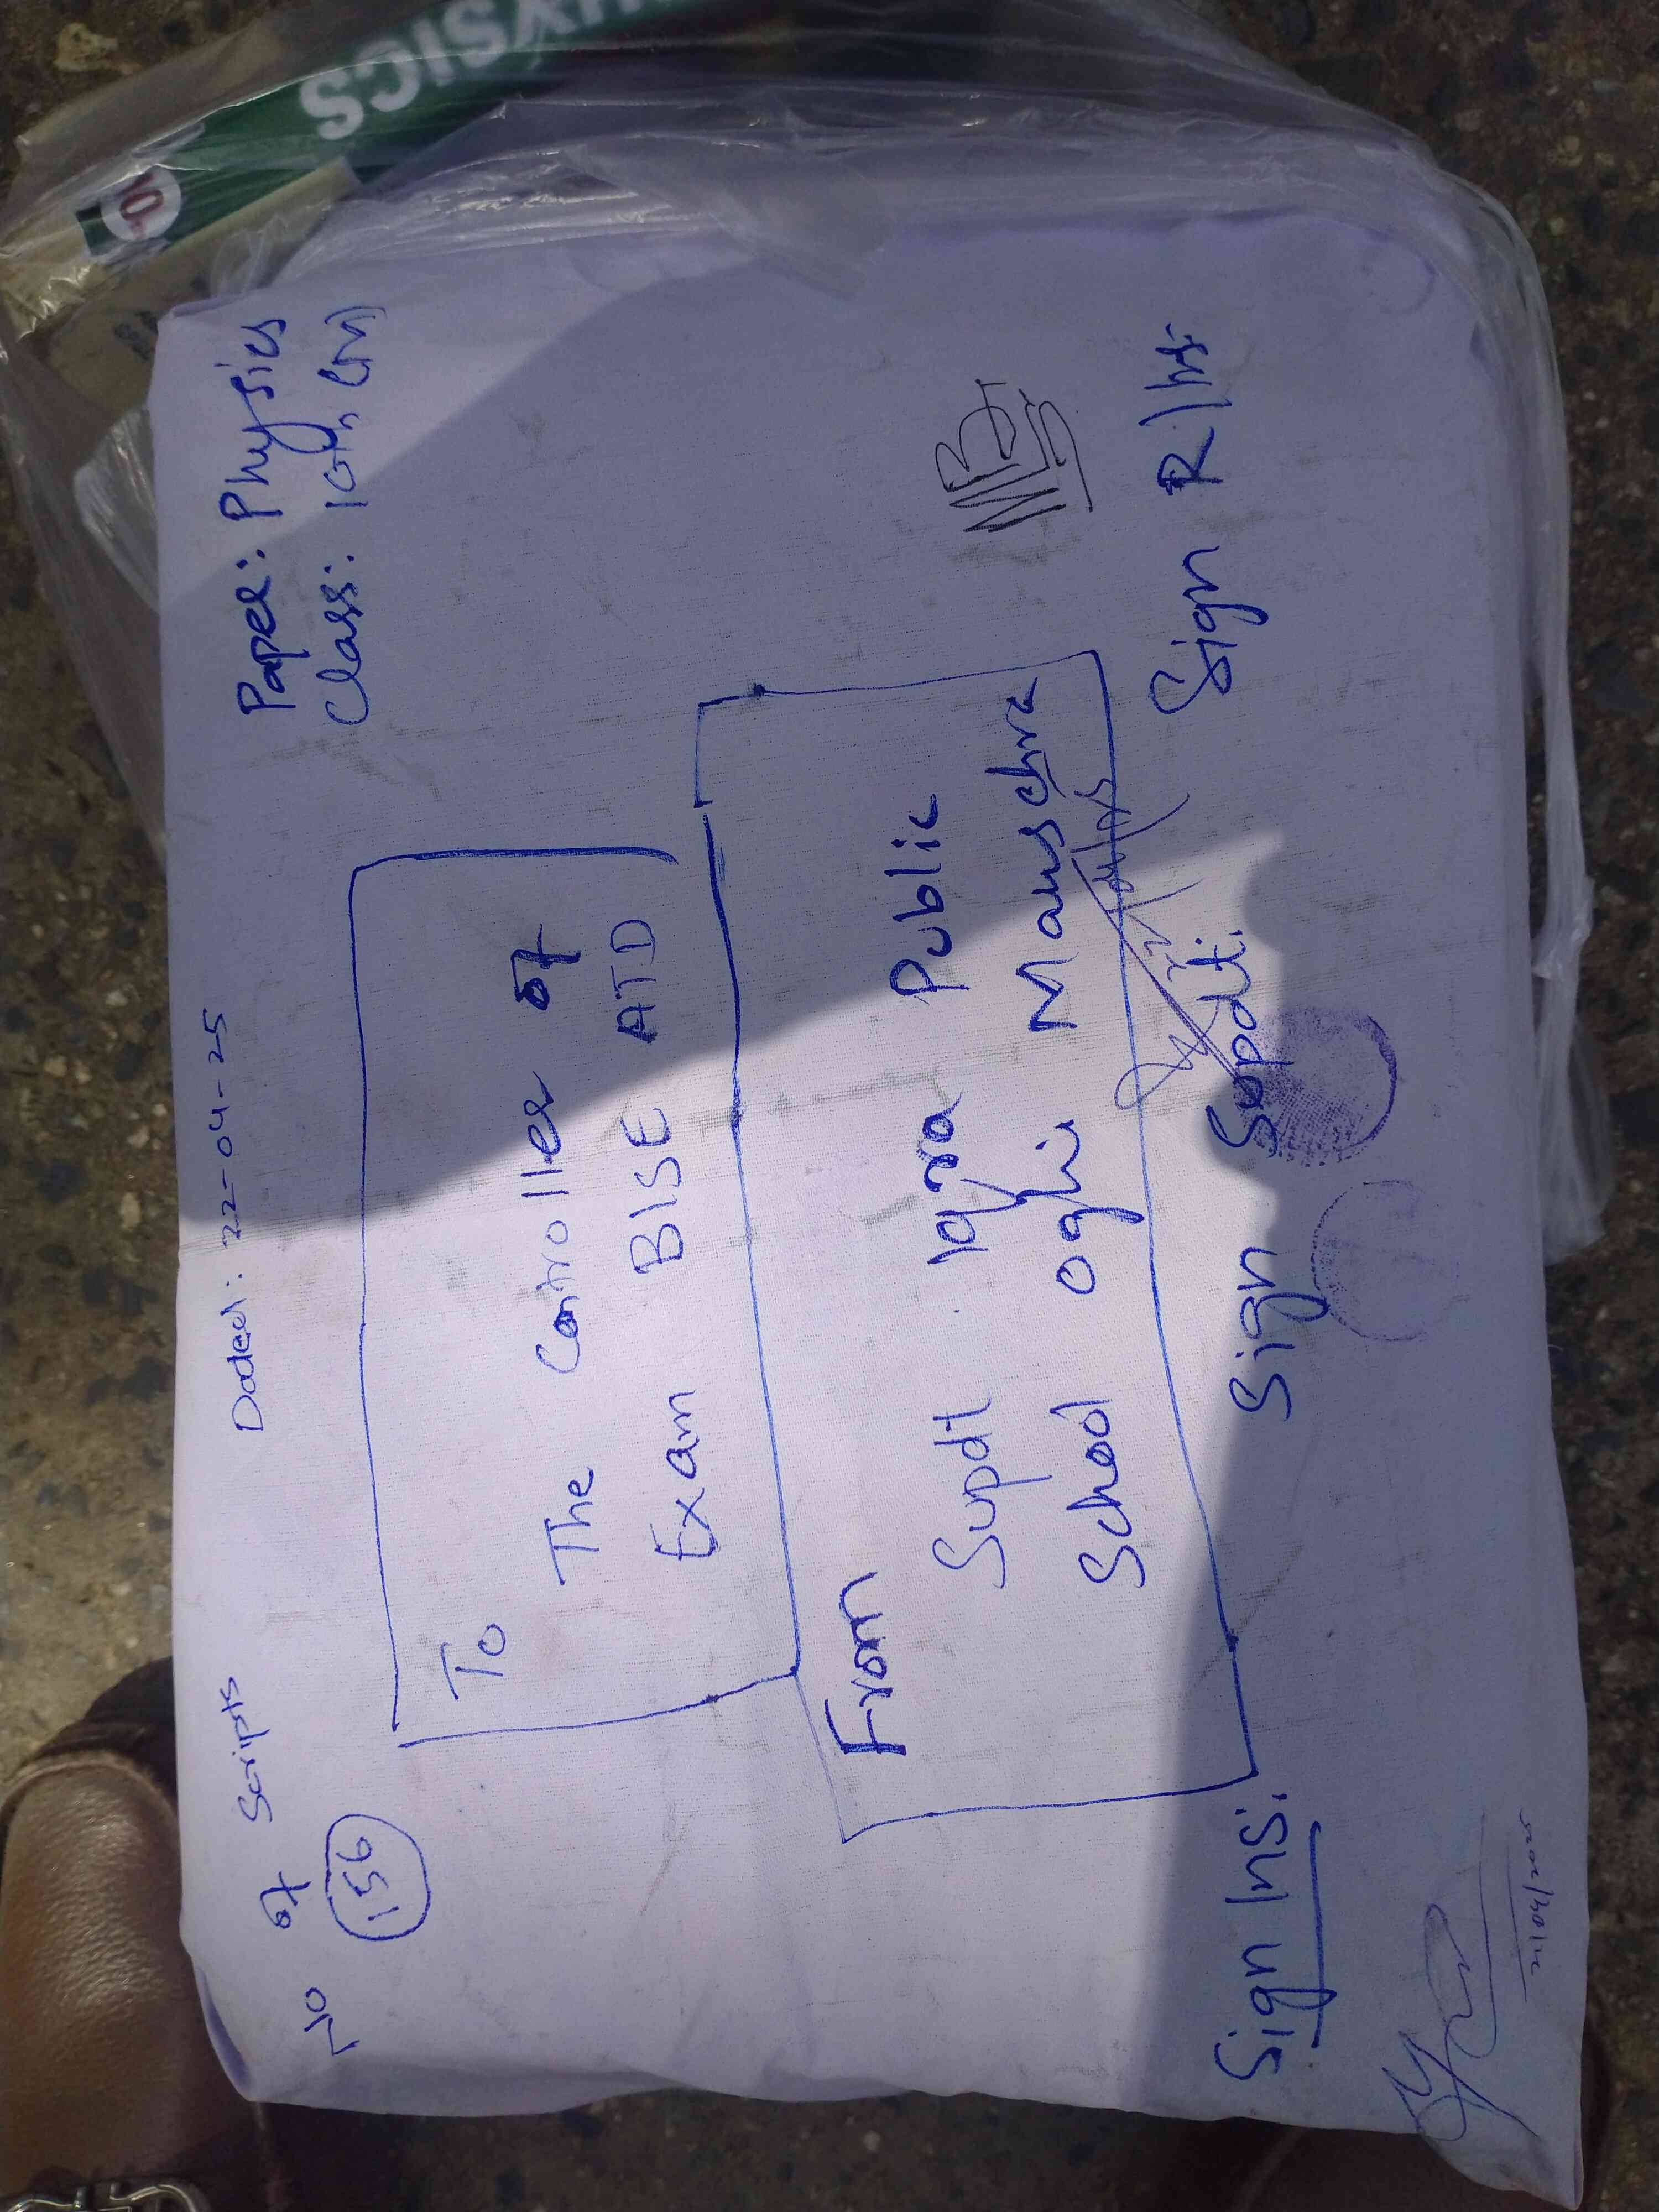 PHYSICS
10
No of Scripts Dated: 22-04-25 Paper: Physics
156 Class: 10th
To
The Controller of
Exam BISE ATD
From
Supdt Iqra Public
School Oghi Mansehra
Sign Ins: Sign Supdt: Sign R/Ins: